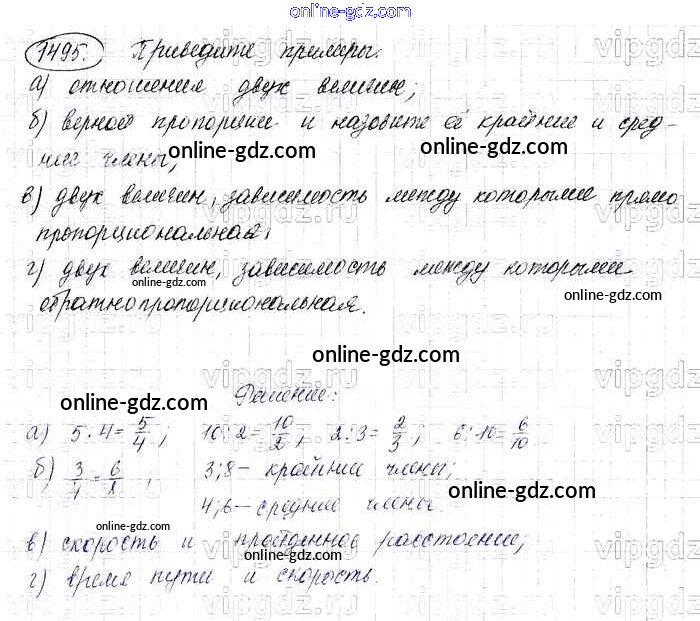 online-gdz.com
1495. Приведите примеры:
а) отношения двух величин;
б) верной пропорции и назовите её крайние и сред-
ние члены;
online-gdz.com
online-gdz.com
в) двух величин, зависимость между которыми прямо
пропорциональная;
online-gdz.com
г) двух величин, зависимость между которыми
online-gdz.com
online-gdz.com
обратно пропорциональная.
online-gdz.com
Решение:
online-gdz.com
а) 5 · 4 = 5/4; 10 : 2 = 10/2; 2 : 3 = 2/3; 6 : 10 = 6/10
б) 3/4 = 6/8, 3; 8 – крайние члены;
online-gdz.com
4; 6 – средние члены.
online-gdz.com
в) скорость и пройденное расстояние;
online-gdz.com
г) время пути и скорость.